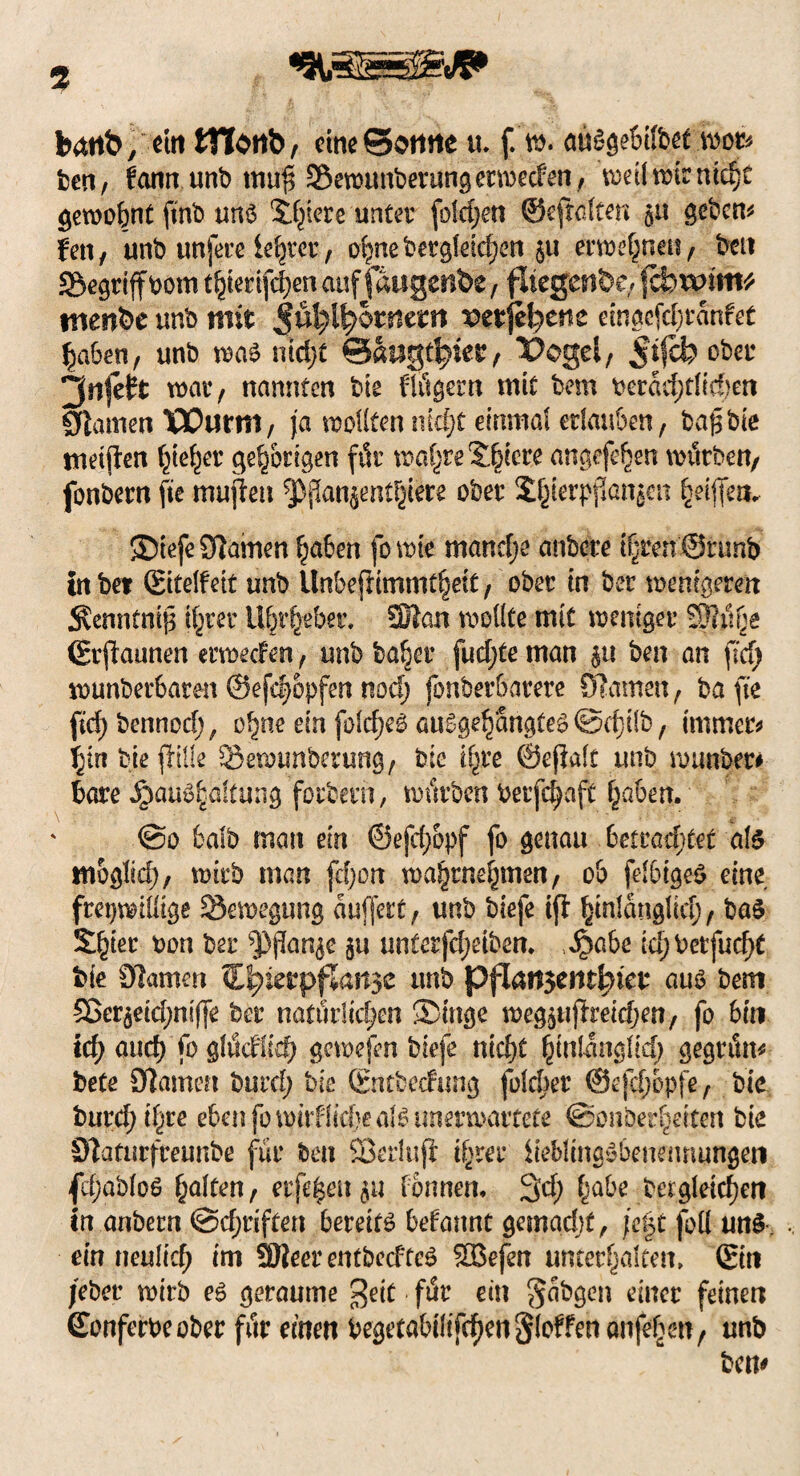 2
band, ein Mond, eine Sonne u. s. w. ausgebildet wor-
den, kann und muß Bewunderung erwecken, weil wir nicht
gewohnt sind uns Thiere unter solchen Gestalten zu geden-
ken, und unsere Lehrer, ohne dergleichen zu erwehnen, den
Begriff vom thierischen auf säugende, fliegende, schwim-
mende und mit Fühlhörnern versehene eingeschränket
haben, und was nicht Säugthier, Vogel, Fisch oder
Insekt war, nannten die klügern mit dem verächtlichen
Namen Wurm, ja wollten nicht einmal erlauben, daß die
meisten hieher gehörigen für wahre Thiere angesehen würden,
sondern sie musten Pflanzenthiere oder Thierpflanzen heissen.
Diese Namen haben so wie manche andere ihren Grund
in der Eitelkeit und Unbestimmtheit, oder in der wenigeren
Kenntniß ihrer Uhrheber. Man wollte mit weniger Mühe
Erstaunen erwecken, und daher suchte man zu den an sich
wunderbaren Geschöpfen noch sonderbarere Namen, da sie
sich dennoch, ohne ein solches ausgehängtes Schild, immer-
hin die stille Bewunderung, die ihre Gestalt und wunder-
bare Haushaltung fordern, würden verschaft haben.
So bald man ein Geschöpf so genau betrachtet als
möglich, wird man schon wahrnehmen, ob selbiges eine
freywillige Bewegung äussert, und diese ist hinlänglich, das
Thier von der Pflanze zu unterscheiden. Habe ich versucht
die Namen Thierpflanze und Pflanzenthier aus dem
Verzeichnisse der natürlichen Dinge wegzustreichen, so bin
ich auch so glücklich gewesen diese nicht hinlänglich gegrün-
dete Namen durch die Entdeckung solcher Geschöpfe, die
durch ihre eben so wirkliche als unerwartete Sonderheiten die
Naturfreunde für den Verlust ihrer Lieblingsbenennungen
schadlos halten, ersetzen zu können. Ich habe dergleichen
in andern Schriften bereits bekannt gemacht, jetzt soll uns
ein neulich im Meer entdecktes Wesen unterhalten. Ein
jeder wird es geraume Zeit für ein Fädgen einer feinen
Conferve oder für einen vegetabilischen Flokken ansehen, und
den-